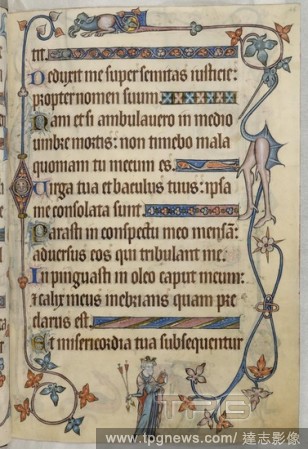 tit.
Deduxit me super semitas iusticie:
propter nomen suum.
Nam et si ambulauero in medio
umbre mortis: non timebo mala
quoniam tu mecum es.
Uirga tua et baculus tuus: ipsa
me consolata sunt.
Parasti in conspectu meo mensā:
aduersus eos qui tribulant me.
Inpinguasti in oleo caput meum:
⁊ calix meus inebrians quam pre
clarus est.
Et misericordia tua subsequentur
TPG
www.tpgnews.com/ 達志影像